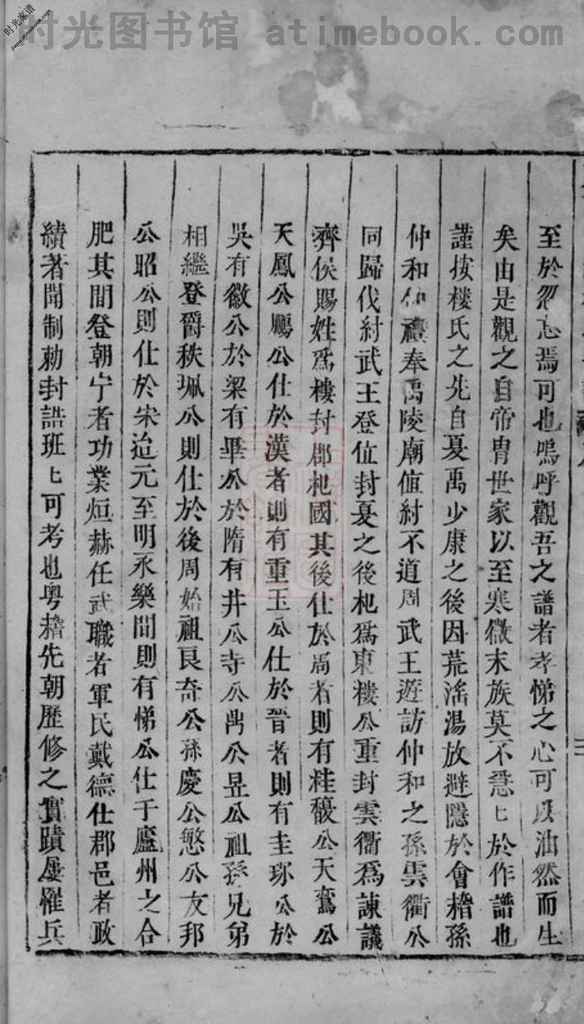 时光图书馆 atimebook.com
时光家谱
至於忽忘焉可也嗚呼觀吾之譜者孝悌之心可以油然而生
矣由是觀之自帝冑世家以至寒微末族莫不惓匕於作譜也
謹按楼氏之先自夏禹少康之後因荒滛湯放避隱於會稽孫
仲和仲禮奉禹陵廟值紂不道周武王遊訪仲和之孫雲衢公
同歸伐紂武王登位封夏之後杞爲東楼公重封雲衢爲諫議
齊侯賜姓爲樓封郡杞國其後仕於周者則有桂馥公天鸞公
天鳳公鵬公仕於漢者則有重玉公仕於晉者則有圭珎公於
吳有徽公於梁有畢公於隋有井公寺公禺公昱公祖孫兄弟
相繼登爵秩珮公則仕於後周始祖良奇公孫慶公慜公友邦
公昭公則仕於宋迨元至明永樂間則有悌公仕于廬州之合
肥其間登朝宁者功業烜赫任武職者軍民戴德仕郡邑者政
績著聞制勅封誥班匕可考也粤稽先朝歷修之實蹟屢罹兵